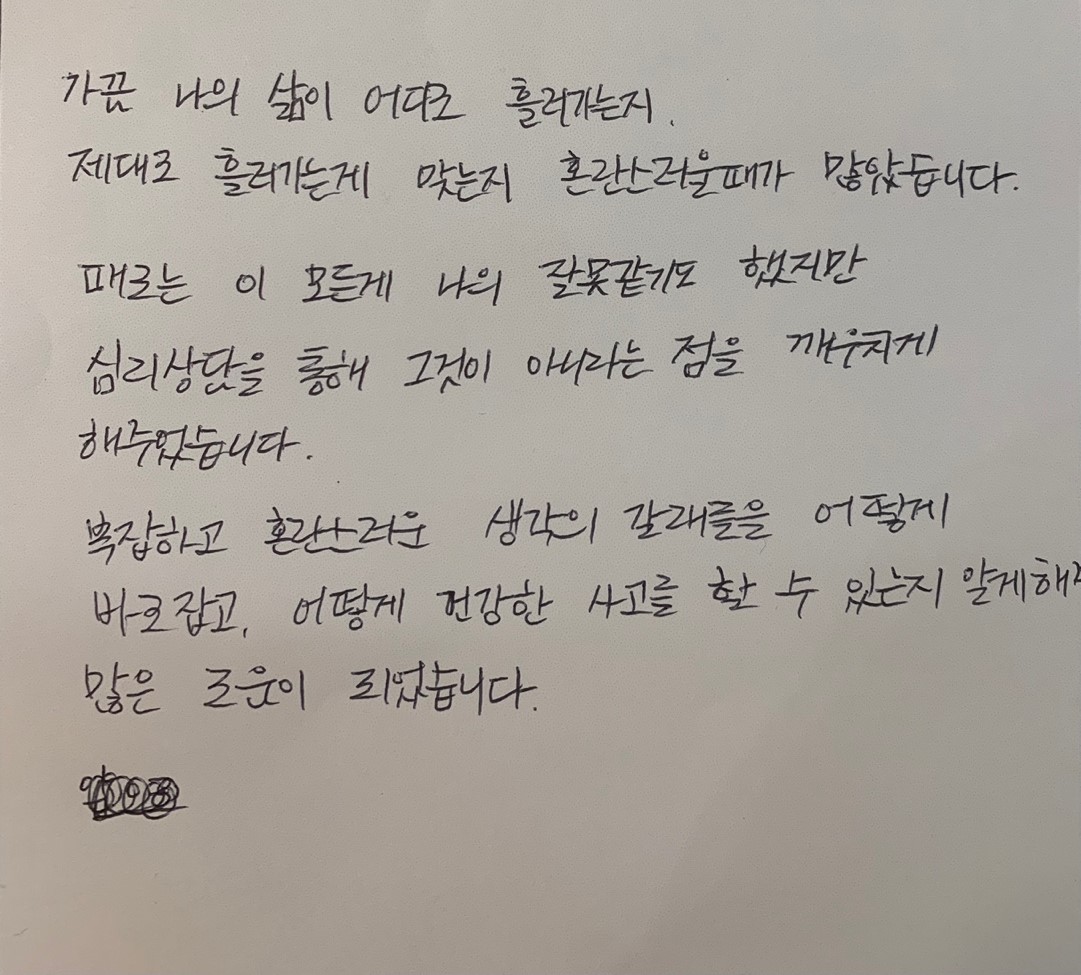 가끔 나의 삶이 어디로 흘러가는지.
제대로 흘러가는게 맞는지 혼란스러울때가 많았습니다.
때로는 이 모든게 나의 잘못같기도 했지만
심리상담을 통해 그것이 아니라는 점을 깨우치게
해주었습니다.
복잡하고 혼란스러운 생각의 갈래를을 어떻게
바로잡고, 어떻게 건강한 사고를 할 수 있는지 알게해
많은 도움이 되었습니다.